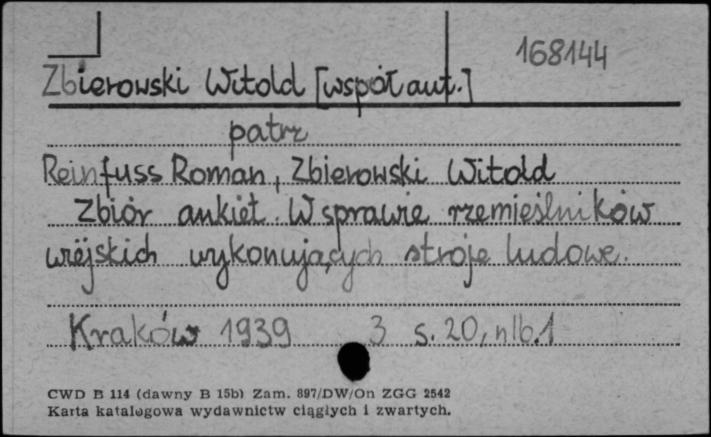 168144
Zbierowski Witold [współaut.]
patrz
Reinfuss Roman, Zbierowski Witold
Zbiór ankiet. W sprawie rzemieślników
wiejskich wykonujących stroje ludowe.
Kraków 1939 3 s. 20, nlb. 1
CWD B 114 (dawny B 15b) Zam. 897/DW/On ZGG 2542
Karta katalogowa wydawnictw ciągłych i zwartych.